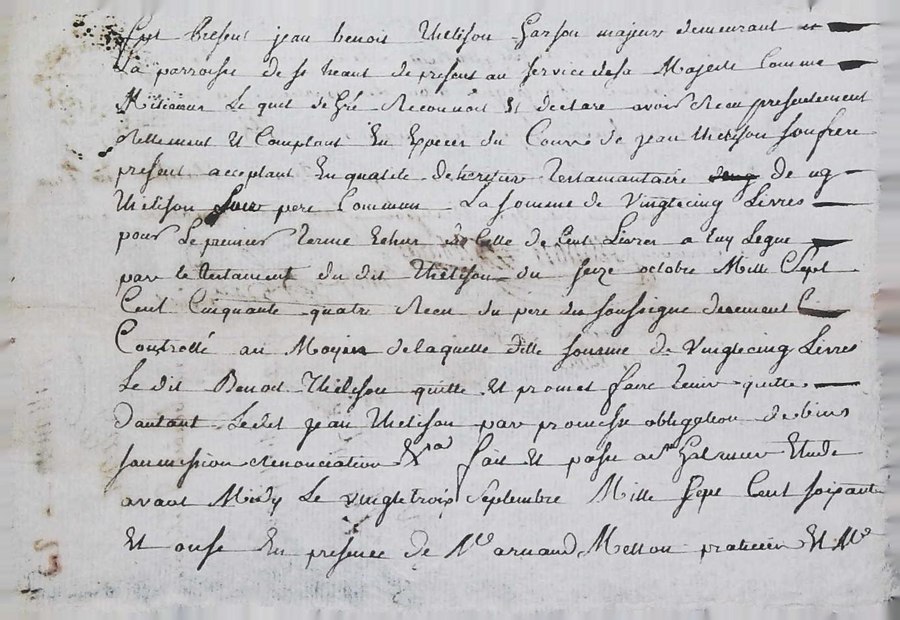 fut present jean benoit thelison garson majeur demeurant
La parroisse de st heant de present au service de sa Majesté Comme
Milicien Lequel de Gré Reconnoit Et declare avoir Receu presentement
Reellement Et Comptant En Especes du Cours de jean thelison son frere
present acceptant En qualité de heritier testamantaire de
thelison pere Commun La somme de vingtecinq Livres
pour Le premier terme Echeu de Celle de Cent Livres a Luy Legué
par le testament du dit thelison du seize octobre Mille Sept
Cent Cinquante quatre Receu du pere du soussigné duement
Controllé au Moyen de laquelle ditte somme de vingtecinq Livres
Le dit Benoit thelison quitte Et promet faire tenir quitte
dautant Ledit jean thelison par promesse obligation de biens
soumission Renonciation &ra fait Et passé a st Galmier Etude
avant Midy Le vingtetrois Septembre Mille Sept Cent soixante
Et onse En presence de Me arnaud Melloü praticien Et Me